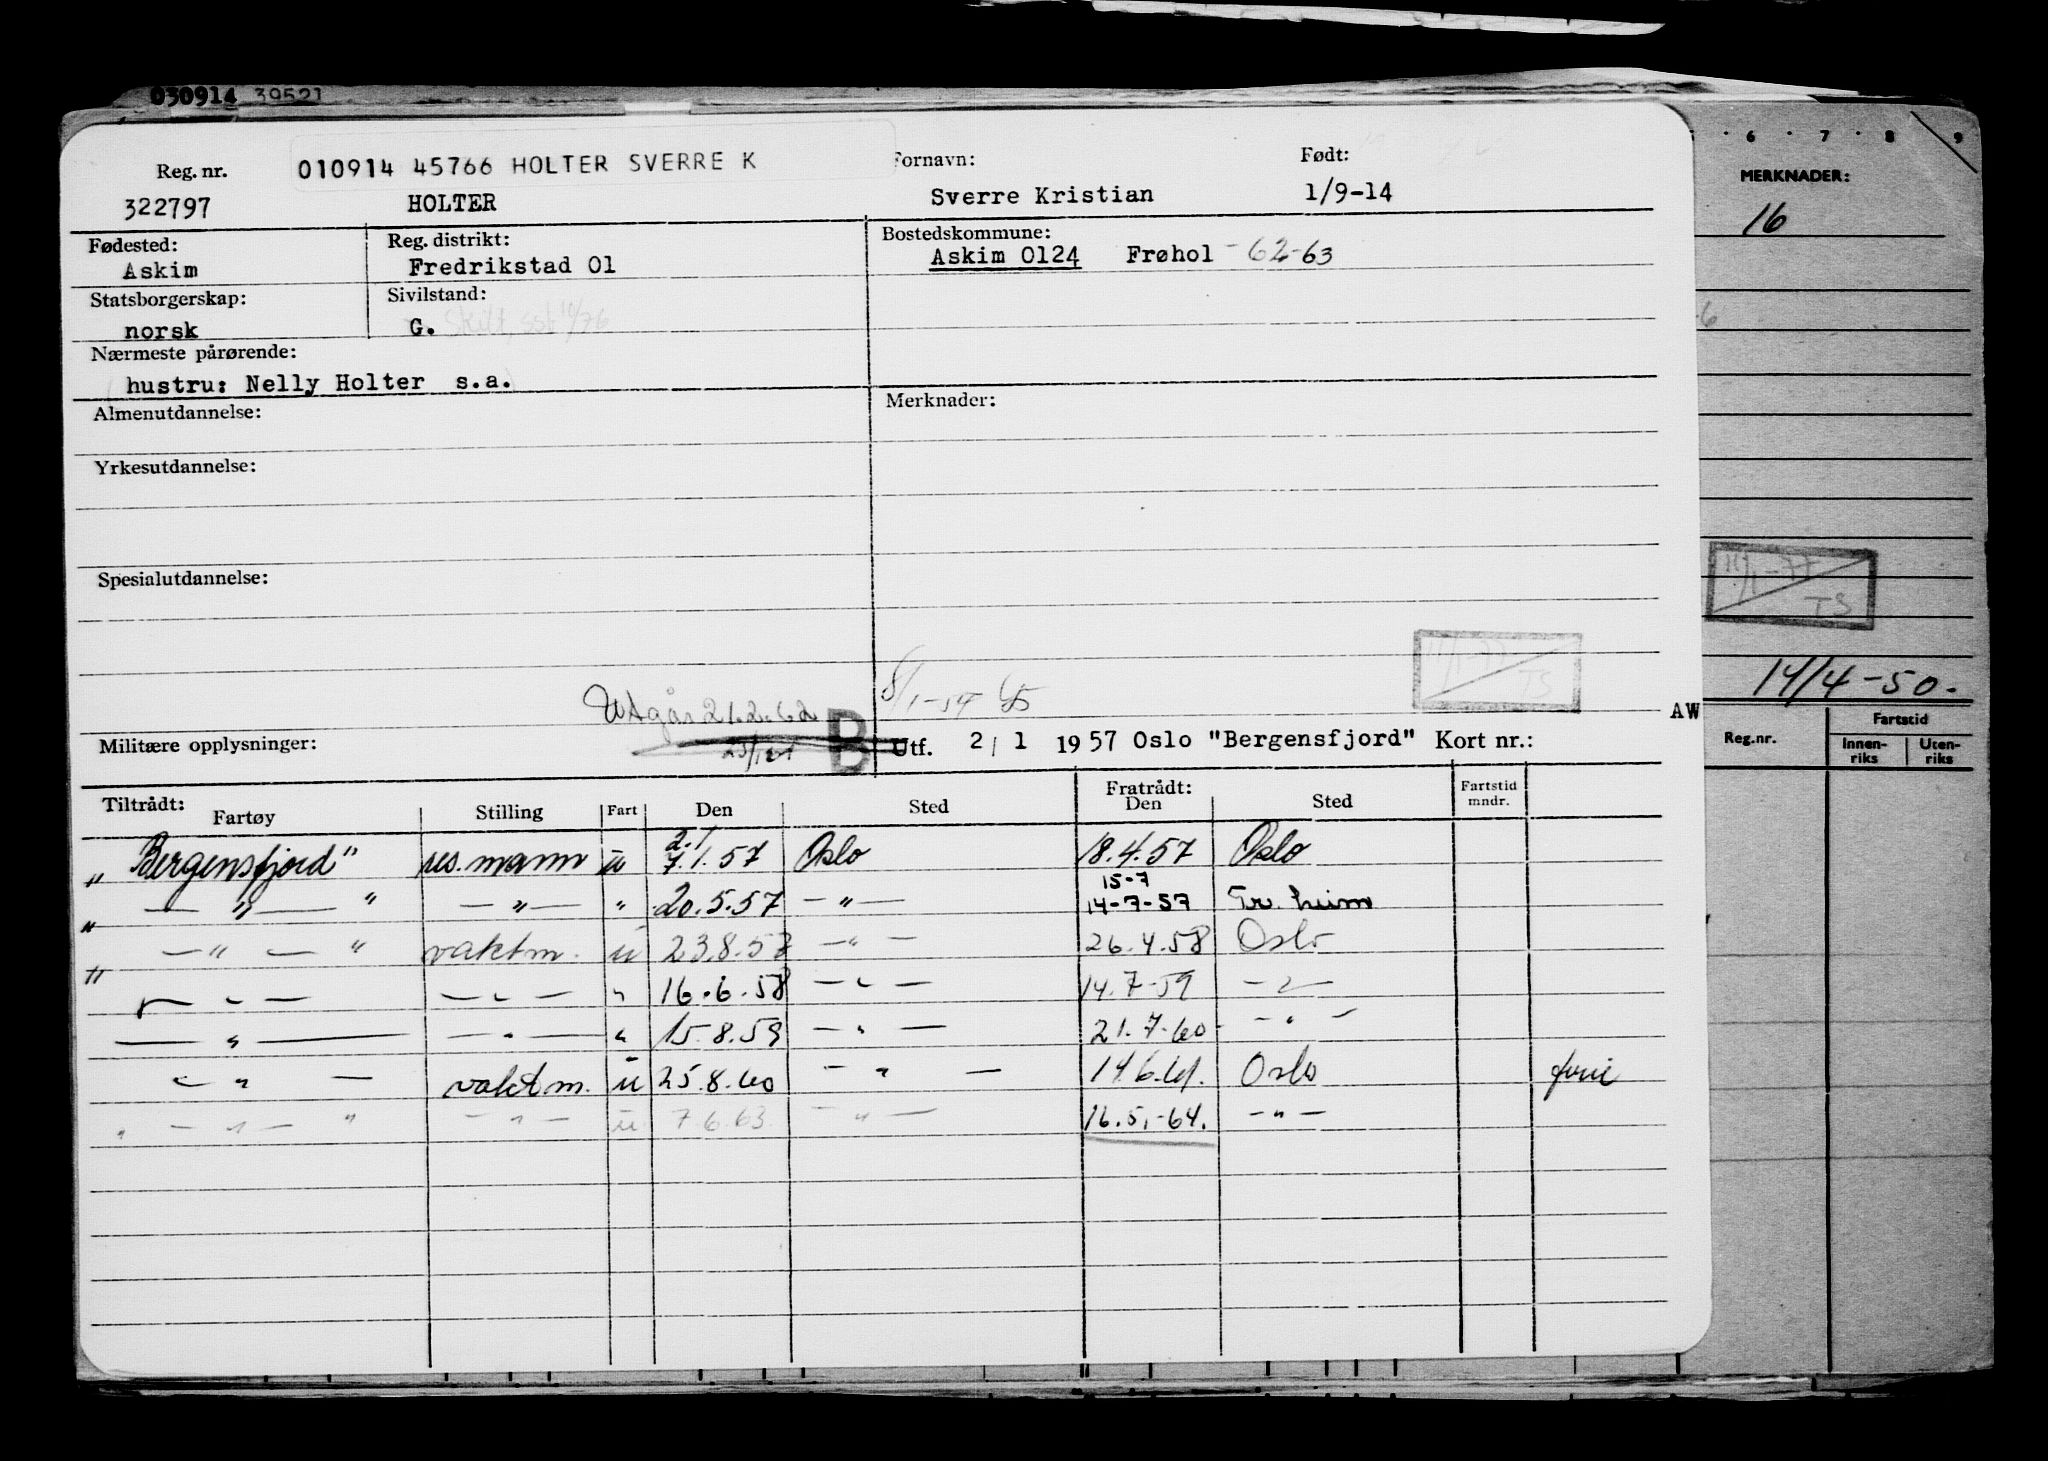 030914 39521
Reg. nr. 010914 45766 HOLTER SVERRE K Fornavn: Født:
322797 HOLTER Sverre Kristian 1/9-14
Fødested: Reg. distrikt: Bostedskommune:
Askim Fredrikstad 01 Askim 0124 Frøhol -62-63
Statsborgerskap: Sivilstand:
norsk G. Skilt, 10/76
Nærmeste pårørende:
hustru: Nelly Holter s.a.
Almenutdannelse: Merknader:
Yrkesutdannelse:
Spesialutdannelse:
11/1-77
TS
8/1-57
Utgår 21.2.62
B
AW
Militære opplysninger: Utf. 2/1 1957 Oslo "Bergensfjord" Kort nr.:
Tiltrådt: Fratrådt: Fartstid
Fartøy Stilling Fart Den Sted Den Sted mndr.
2.1
"Bergensfjord" res. mann u 7.1.57 Oslo 18.4.57 Oslo
15-7
" — " — " — " — " 20.5.57 — " — 14-7-57 Tr. heim
" — " — " vaktm. u 23.8.57 — " — 26.4.58 Oslo
— " — — " — " 16.6.58 — " — 14.7-59 — " —
— " — — " — " 15.8.59 — " — 21.7.60 — " —
— " — vaktm. u 25.8.60 — " — 14.6.61. Oslo
" — " — " — " — u 7.6.63. — " — 16.5.-64. — " —
6 7 8 9
MERKNADER:
16
11/1-77
TS
14/4-50.
Reg.nr. Fartstid
Innen-riks Uten-riks